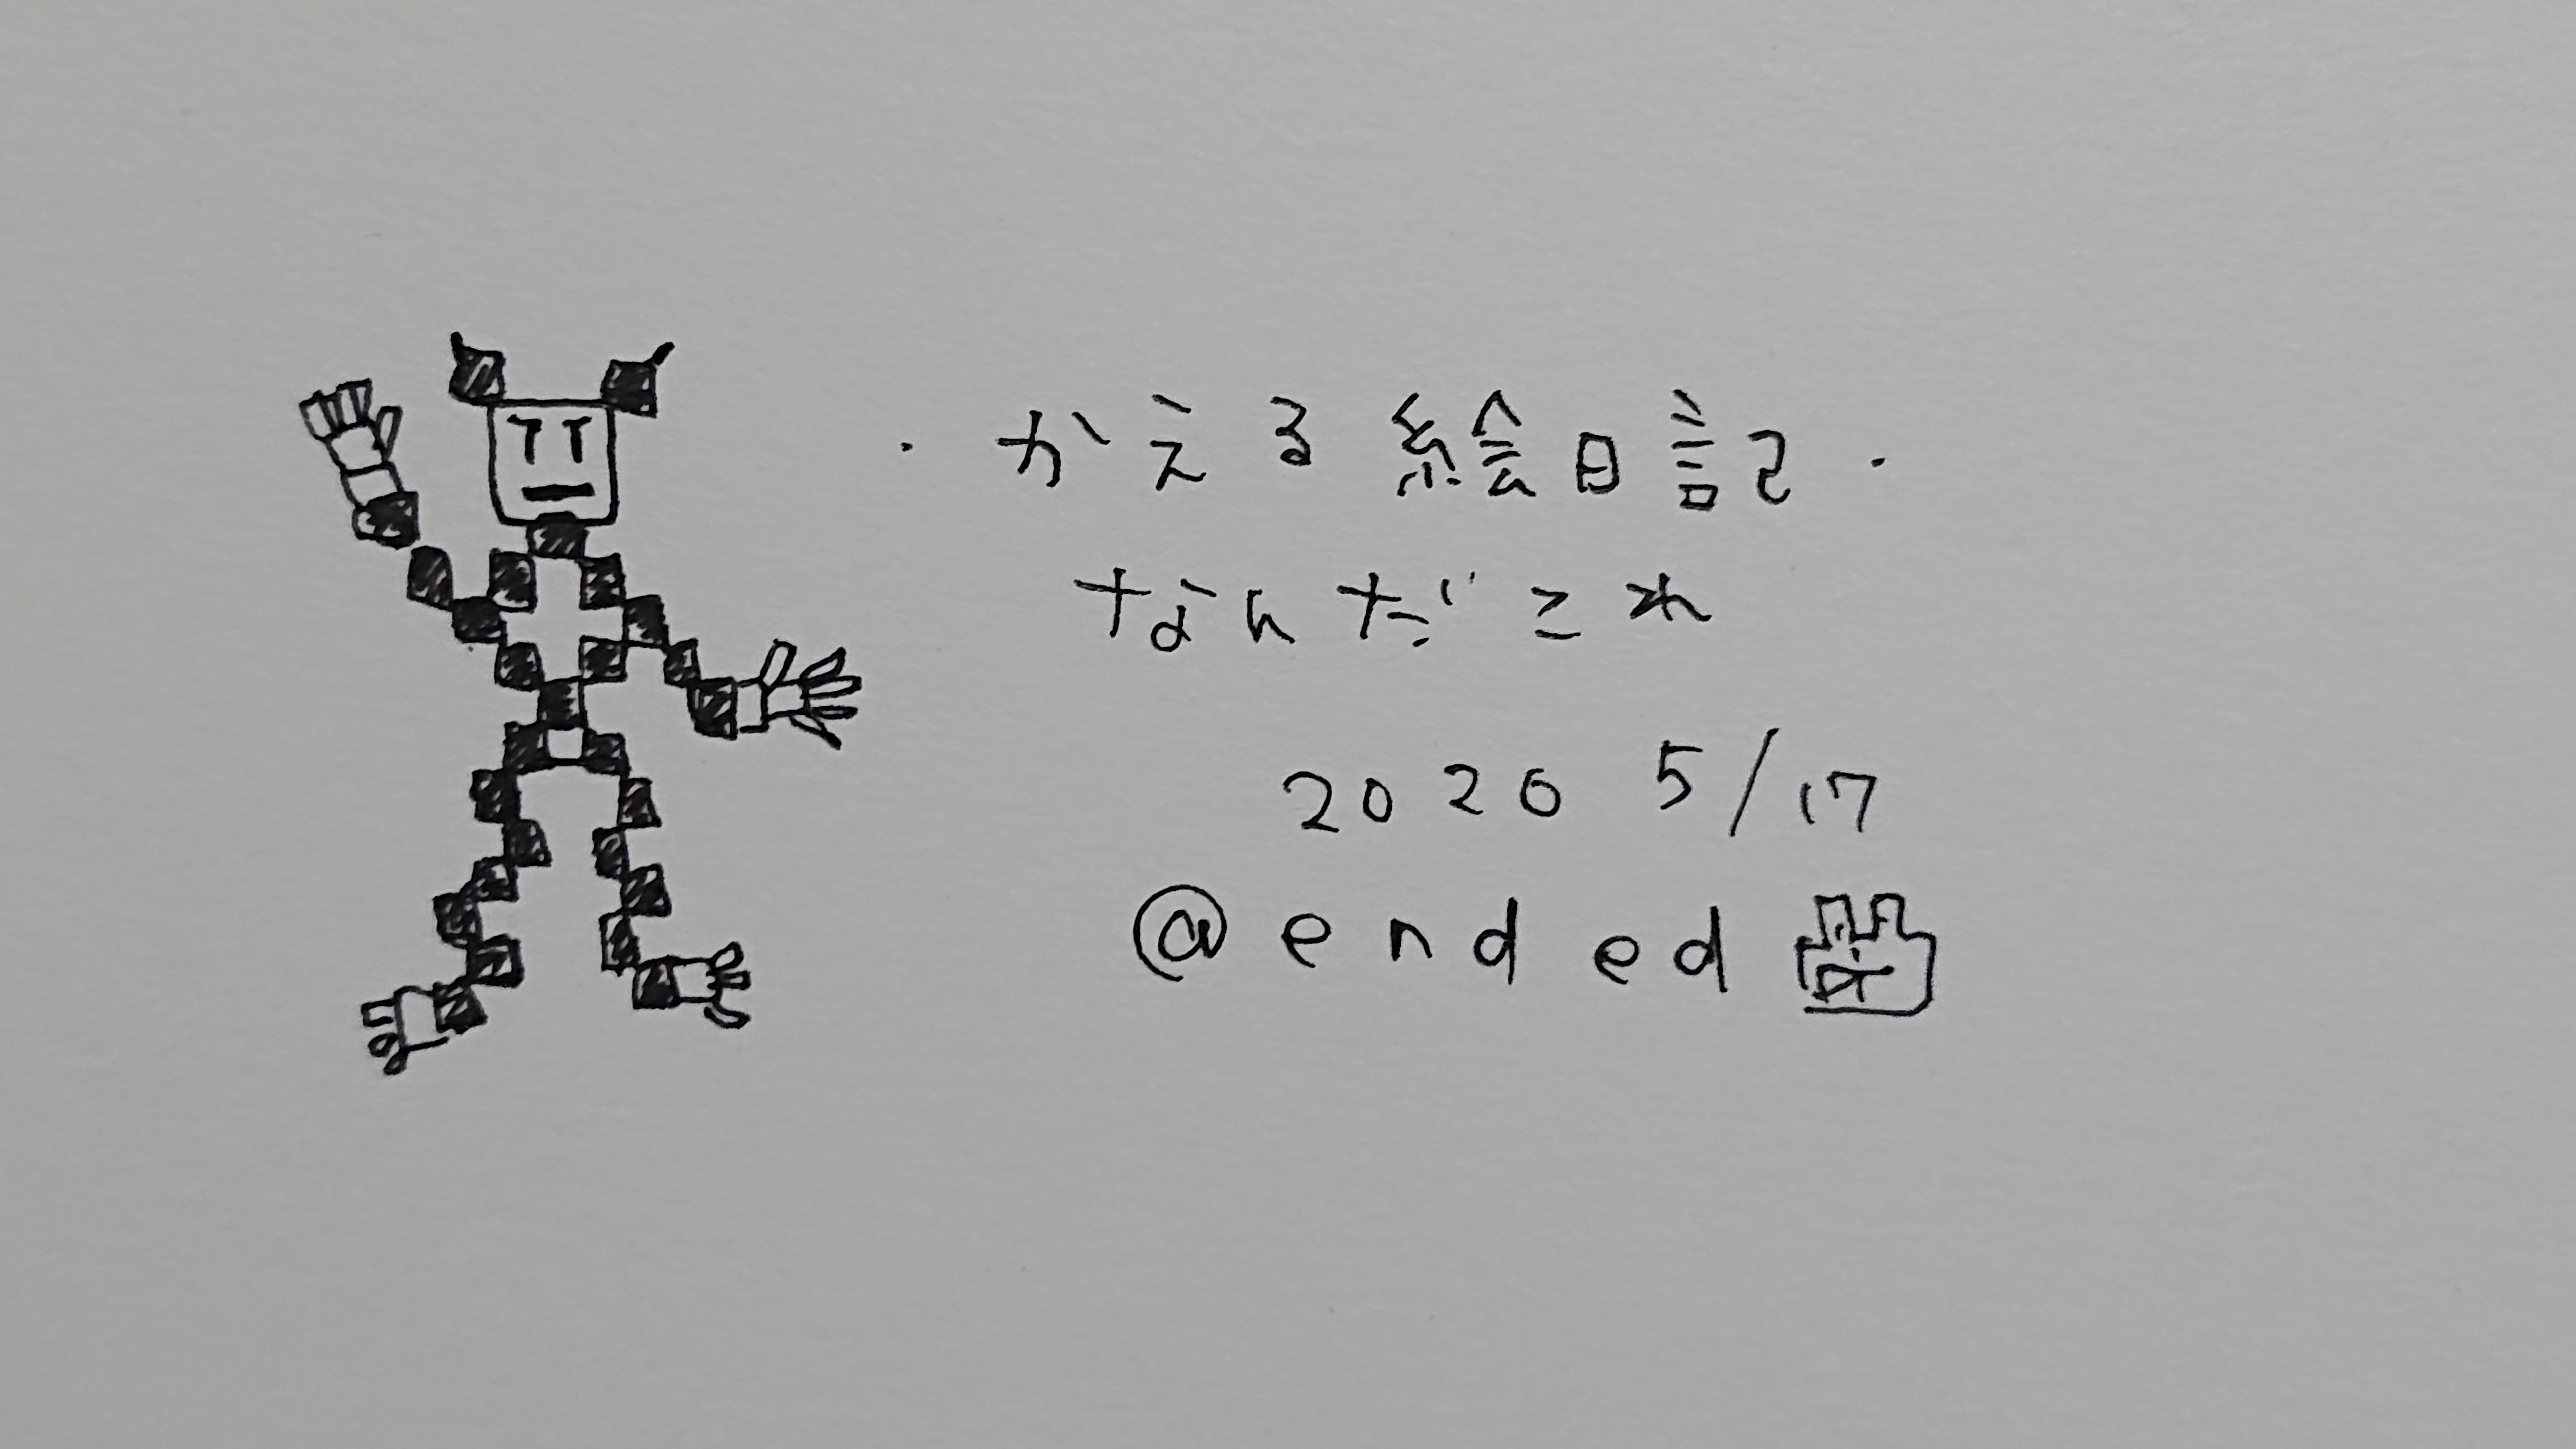 ・かえる絵日記・
なんだこれ
2020 5/17
@ended